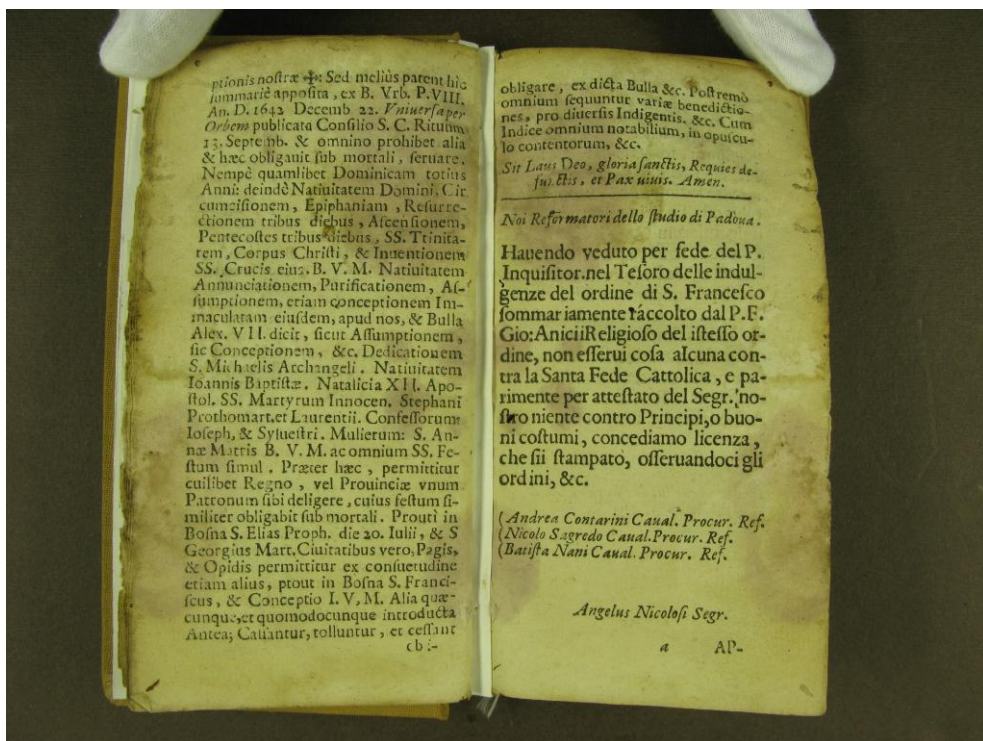 ptionis nostræ ✠: Sed meliùs patent hic
summariè apposita, ex B. Vrb. P. VIII.
An. D. 1642 Decemb 22. Vniuersa per
Orbem publicata Consilio S. C. Rituum
13. Septemb. & omnino prohibet alia
& hæc obligauit sub mortali, seruare.
Nempè quamlibet Dominicam totius
Anni: deindè Natiuitatem Domini. Cir
cumcisionem, Epiphaniam, Resurre-
ctionem tribus diebus, Ascensionem,
Pentecostes tribus diebus, SS. Trinita-
tem, Corpus Christi, & Inuentionem
SS. Crucis eius. B. V. M. Natiuitatem
Annunciationem, Purificationem, As-
sumptionem, etiam conceptionem Im-
maculatam eiusdem, apud nos, & Bulla
Alex. VII. dicit, sicut Assumptionem,
sic Conceptionem, &c. Dedicationem
S. Michaelis Archangeli. Natiuitatem
Ioannis Baptistæ. Natalicia XII. Apo-
stol. SS. Martyrum Innocen. Stephani
Prothomart. et Laurentii. Confessorum:
Ioseph, & Syluestri. Mulierum: S. An-
næ Matris B. V. M. ac omnium SS. Fe-
stum simul. Præter hæc, permittitur
cuilibet Regno, vel Prouinciæ vnum
Patronum sibi deligere, cuius festum si-
militer obligabit sub mortali. Prouti in
Bosna S. Elias Proph. die 20. Iulii, & S
Georgius Mart. Ciuitatibus vero, Pagis,
& Opidis permittitur ex consuetudine
etiam alius, prout in Bosna S. Franci-
scus, & Conceptio I. V, M. Alia quæ-
cunque, et quomodocunque introducta
Antea; Cassantur, tolluntur, et cessant
cb :-
obligare, ex dicta Bulla &c. Postremò
omnium sequuntur variæ benedictio-
nes, pro diuersis Indigentis. &c. Cum
Indice omnium notabilium, in opuscu-
lo contentorum, &c.
Sit Laus Deo, gloria sanctis, Requies de-
functis, et Pax uiuis. Amen.
Noi Reformatori dello studio di Padoua.
Hauendo veduto per fede del P.
Inquisitor. nel Tesoro delle indul-
genze del ordine di S. Francesco
sommariamente ráccolto dal P. F.
Gio: AniciiReligioso del istesso or-
dine, non esserui cosa alcuna con-
tra la Santa Fede Cattolica, e pa-
rimente per attestato del Segr. no-
stro niente contro Principi, o buo-
ni costumi, concediamo licenza,
che sii stampato, osseruandoci gli
ordini, &c.
(Andrea Contarini Caual. Procur. Ref.
(Nicolo Sagredo Caual. Procur. Ref.
(Batista Nani Caual. Procur. Ref.
Angelus Nicolosi Segr.
a AP-